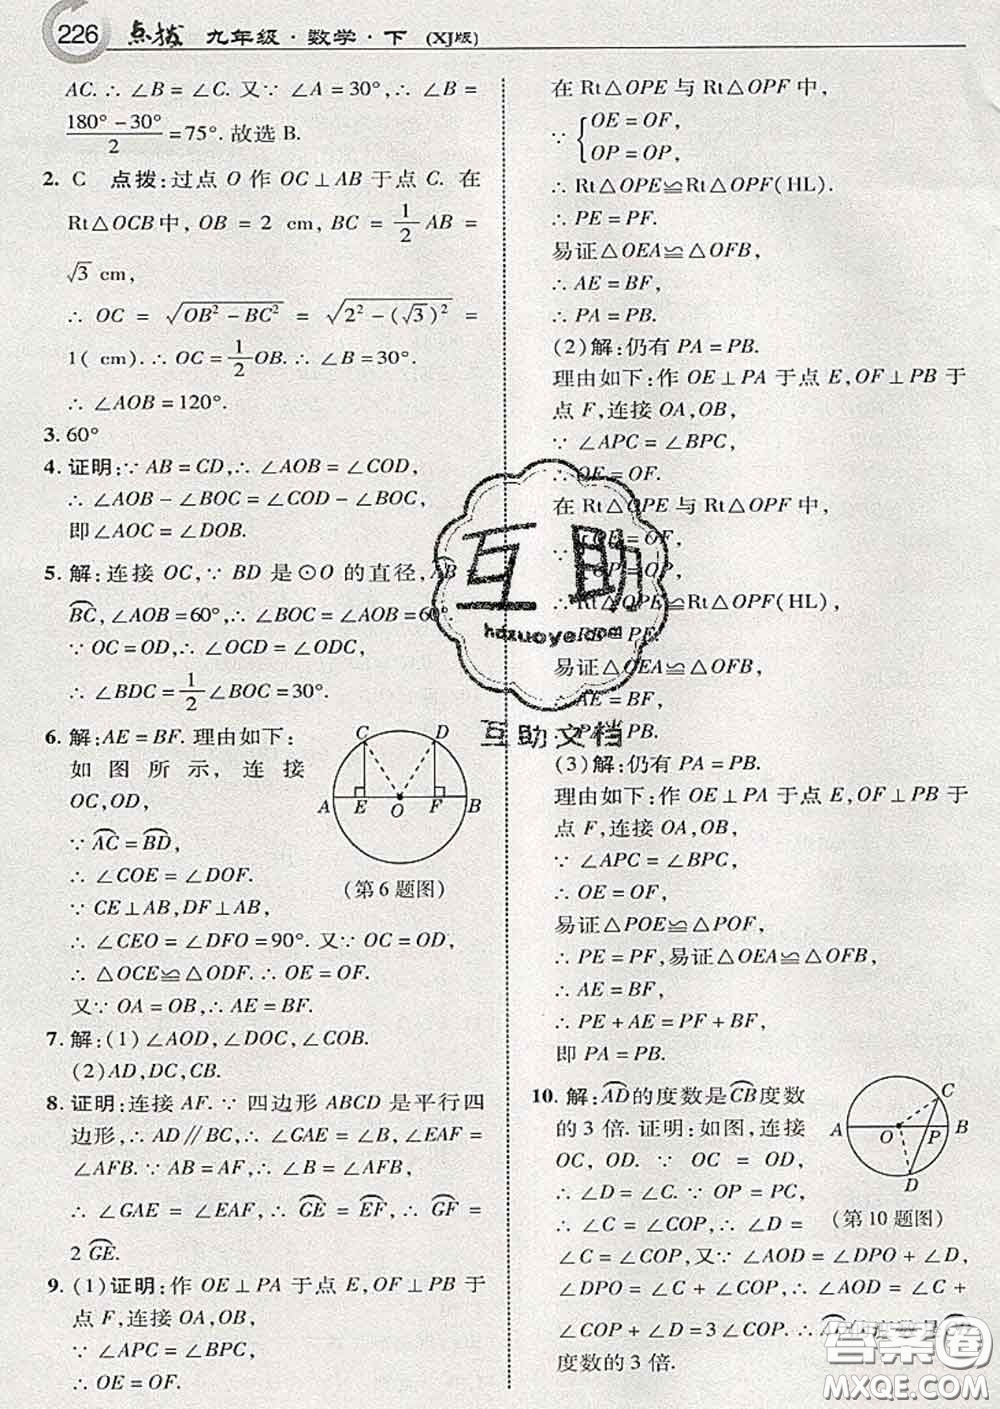 226 点拨 九年级·数学·下 (XJ版)
AC.∴∠B=∠C.又∵∠A=30°,∴∠B=
180°-30°/2=75°.故选 B.
2. C 点拨:过点 O 作 OC⊥AB 于点 C. 在
Rt△OCB中, OB=2 cm, BC=1/2 AB=
√3 cm,
∴ OC = √(OB²-BC²) = √(2²-(√3)²) =
1( cm).∴ OC=1/2 OB.∴∠B=30°.
∴∠AOB=120°.
3. 60°
4. 证明:∵AB=CD,∴∠AOB=∠COD,
∴∠AOB-∠BOC=∠COD-∠BOC,
即∠AOC=∠DOB.
5. 解:连接 OC,∵ BD 是⊙O 的直径,⌒AB=
⌒BC,∠AOB=60°,∴∠BOC=∠AOB=60°.
∵OC=OD,∴∠OCD=∠ODC.
∴∠BDC=1/2∠BOC=30°.
6. 解:AE=BF. 理由如下:
如图所示,连接
OC,OD,
∵⌒AC=⌒BD,
∴∠COE=∠DOF.
∵CE⊥AB,DF⊥AB,
∴∠CEO=∠DFO=90°. 又∵OC=OD,
∴△OCE≌△ODF.∴OE=OF.
又∵OA=OB,∴AE=BF.
C D
A E O F B
(第6题图)
7. 解:(1)∠AOD,∠DOC,∠COB.
(2)AD,DC,CB.
8. 证明:连接 AF.∵四边形 ABCD 是平行四
边形,∴AD∥BC,∴∠GAE=∠B,∠EAF=
∠AFB.∵AB=AF,∴∠B=∠AFB.
∴∠GAE=∠EAF,∴⌒GE=⌒EF,∴⌒GF=
2⌒GE.
9. (1)证明:作 OE⊥PA 于点 E,OF⊥PB 于
点 F,连接 OA,OB,
∵∠APC=∠BPC,
∴OE=OF.
在 Rt△OPE 与 Rt△OPF 中,
∵{OE=OF,
OP=OP,
∴Rt△OPE≌Rt△OPF(HL).
∴PE=PF.
易证△OEA≌△OFB,
∴AE=BF,
∴PA=PB.
(2)解:仍有 PA=PB.
理由如下:作 OE⊥PA 于点 E,OF⊥PB 于
点 F,连接 OA,OB,
∵∠APC=∠BPC,
∴OE=OF.
在 Rt△OPE 与 Rt△OPF 中,
∵ OE=OF,
∴Rt△OPE≌Rt△OPF(HL),
PE.
易证△OEA≌△OFB,
∴AE=BF,
PB.
(3)解:仍有 PA=PB.
理由如下:作 OE⊥PA 于点 E,OF⊥PB 于
点 F,连接 OA,OB,
∵∠APC=∠BPC,
∴OE=OF.
易证△POE≌△POF,
∴PE=PF,易证△OEA≌△OFB,
∴AE=BF,
∴PE+AE=PF+BF,
即 PA=PB.
10. 解:⌒AD的度数是⌒CB度数
的 3 倍. 证明:如图,连接
OC, OD.∵ OC = OD,
∴∠C=∠D.∵OP=PC,
∴∠C=∠COP,∴∠D=
∠C=∠COP,又∵∠AOD=∠DPO+∠D,
∠DPO=∠C+∠COP,∴∠AOD=∠C+
∠COP+∠D=3∠COP.∴⌒AD的度数是
度数的 3 倍.
C
A O P B
D
(第10题图)
互助
hdzuoye.com
互助文档
答案圈
MXQE.COM